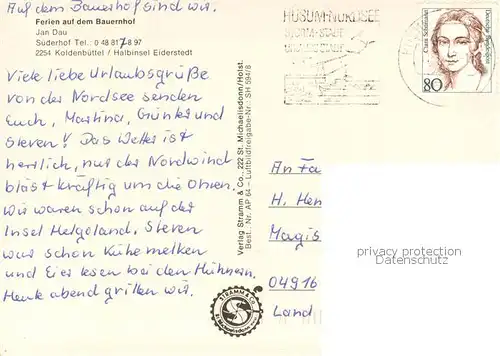 Auf dem Bauerhof sind wir.
Ferien auf dem Bauernhof
Jan Dau
Süderhof Tel.: 0 48 817-8 97
2254 Koldenbüttel / Halbinsel Eiderstedt
Viele liebe Urlaubsgrüße
von der Nordsee senden
Euch, Martina, Günter und
Steven! Das Wetter ist
herrlich, nur der Nordwind
bläst kräftig um die Ohren.
Wir waren schon auf der
Insel Helgoland. Steven
war schon Kühe melken
und Eier lesen bei den Hühnern.
Heute abend grillen wir.
Verlag Stramm & Co., 222 St. Michaelisdonn/Holst.
Best. Nr. AP 64 – Luftbildfreigabe-Nr. SH 594/8
STRAMM & CO.
St. Michaelisdonn
HUSUM-NORDSEE
STORM-STADT
Clara Schumann
Deutsche Bundespost
80
An Fa
H. Hen
Magis
04916
Land
privacy protection
Datenschutz